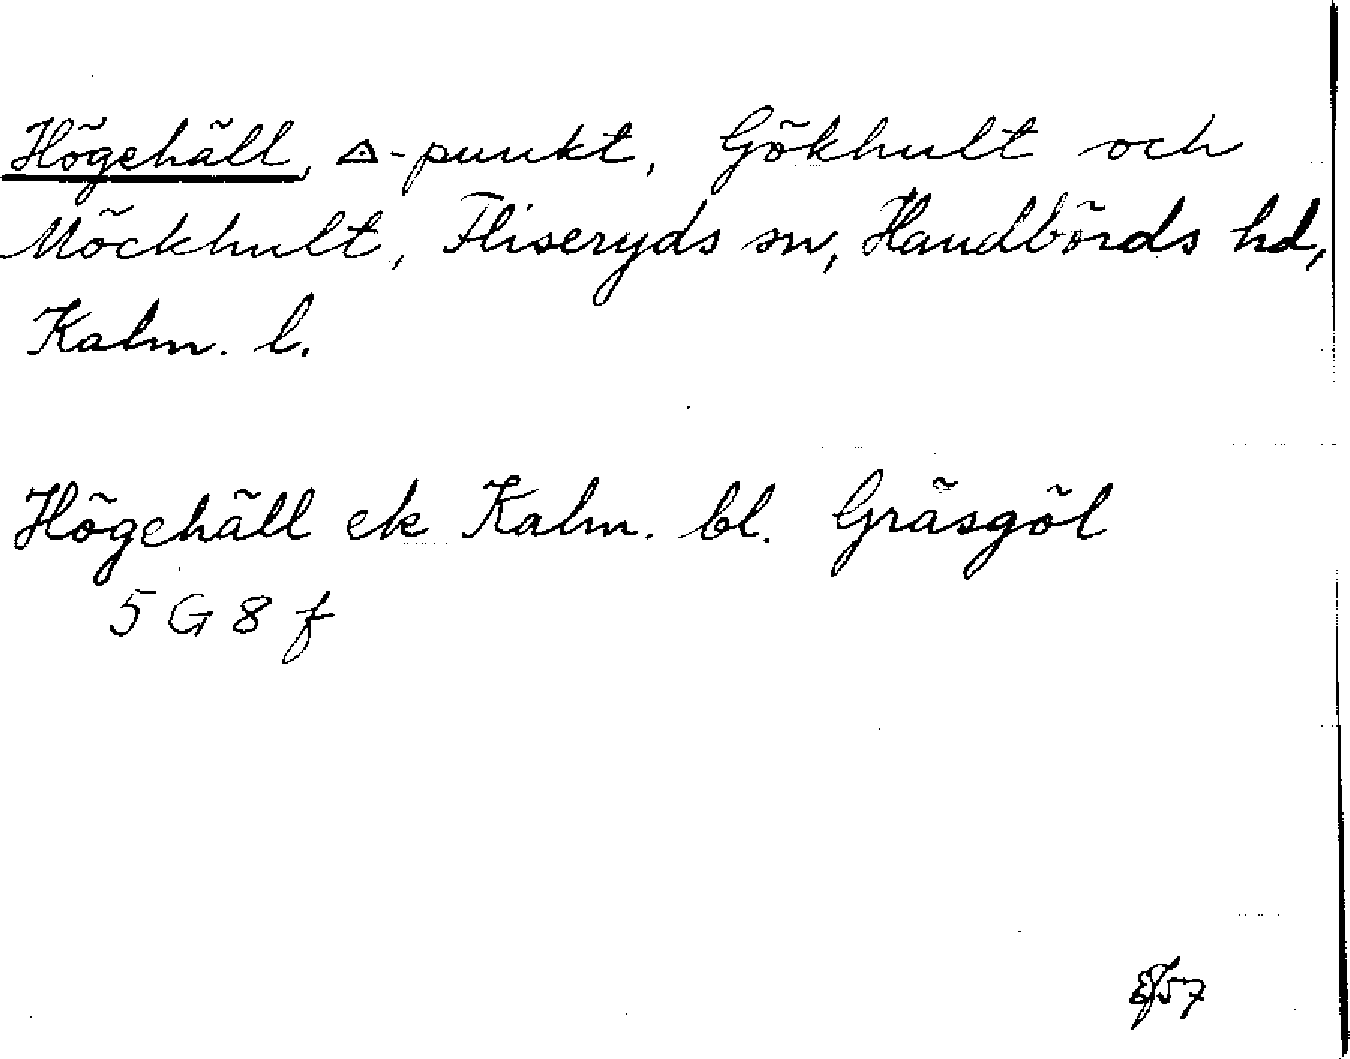 Högehäll, △-punkt, Gökhult och
Möckhult, Fliseryds sn, Handbörds hd,
Kalm. l.
Högehäll ek Kalm. bl. Gräsgöl
5 G 8 f
57